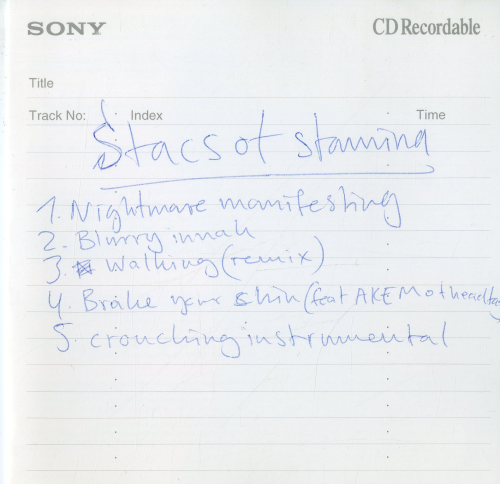 SONY CD Recordable
Title
Track No: Index Time
Stacs of stamina
1. Nightmare manifesting
2. Blurry innah
3. Walking (remix)
4. Brake your shin (feat AKE Motheadfag
5. crouching instrumental